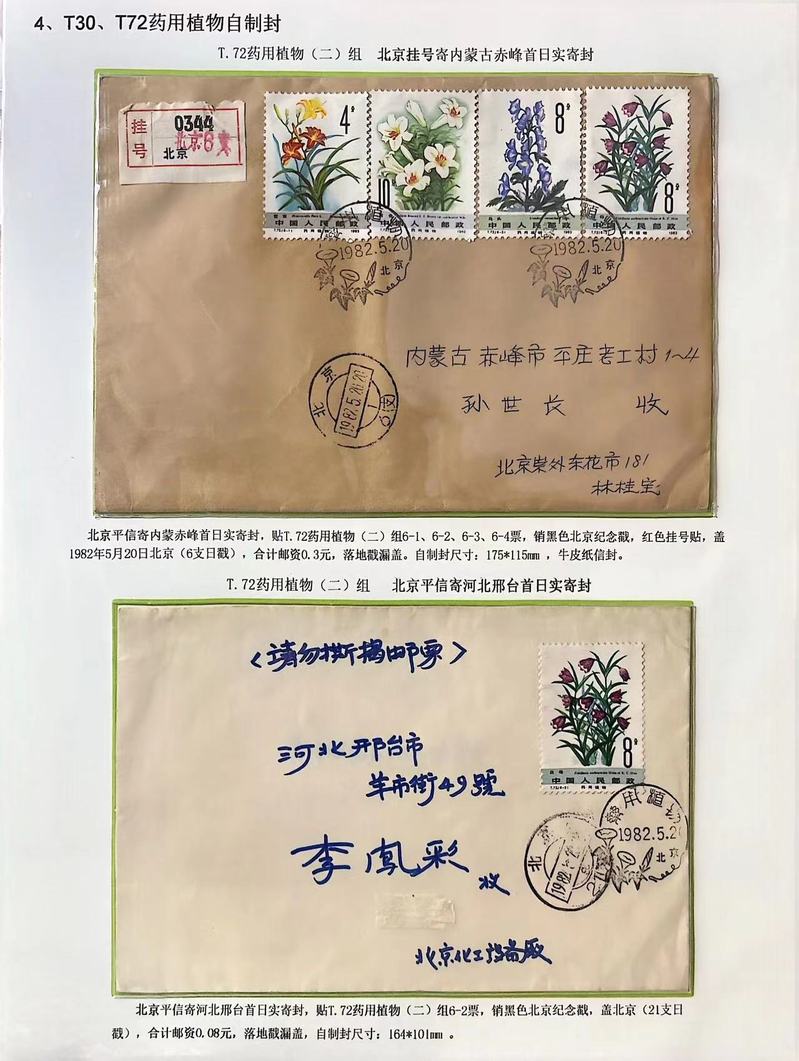 4、T30、T72药用植物自制封
T.72药用植物（二）组 北京挂号寄内蒙古赤峰首日实寄封
挂号
0344
北京6支
北京
4分
10
8分
8分
中国人民邮政
中国人民邮政
中国人民邮政
中国人民邮政
药用植物
1982.5.20
北京
药用植物
1982.5.20
北京
北京
1982.5.20.20
内蒙古 赤峰市 平庄老工村1~4
孙世长 收
北京崇外东花市181
林桂宝
北京平信寄内蒙赤峰首日实寄封，贴T.72药用植物（二）组6-1、6-2、6-3、6-4票，销黑色北京纪念戳，红色挂号贴，盖
1982年5月20日北京（6支日戳），合计邮资0.3元，落地戳漏盖。自制封尺寸：175*115mm ，牛皮纸信封。
T.72药用植物（二）组 北京平信寄河北邢台首日实寄封
<请勿撕揭邮票>
8分
中国人民邮政
河北邢台市
羊市街49號
药用植物
1982.5.20
北京
北京
李鳳彩 收
北京化工设备厂
北京平信寄河北邢台首日实寄封，贴T.72药用植物（二）组6-2票，销黑色北京纪念戳，盖北京（21支日
戳），合计邮资0.08元，落地戳漏盖，自制封尺寸：164*101mm 。